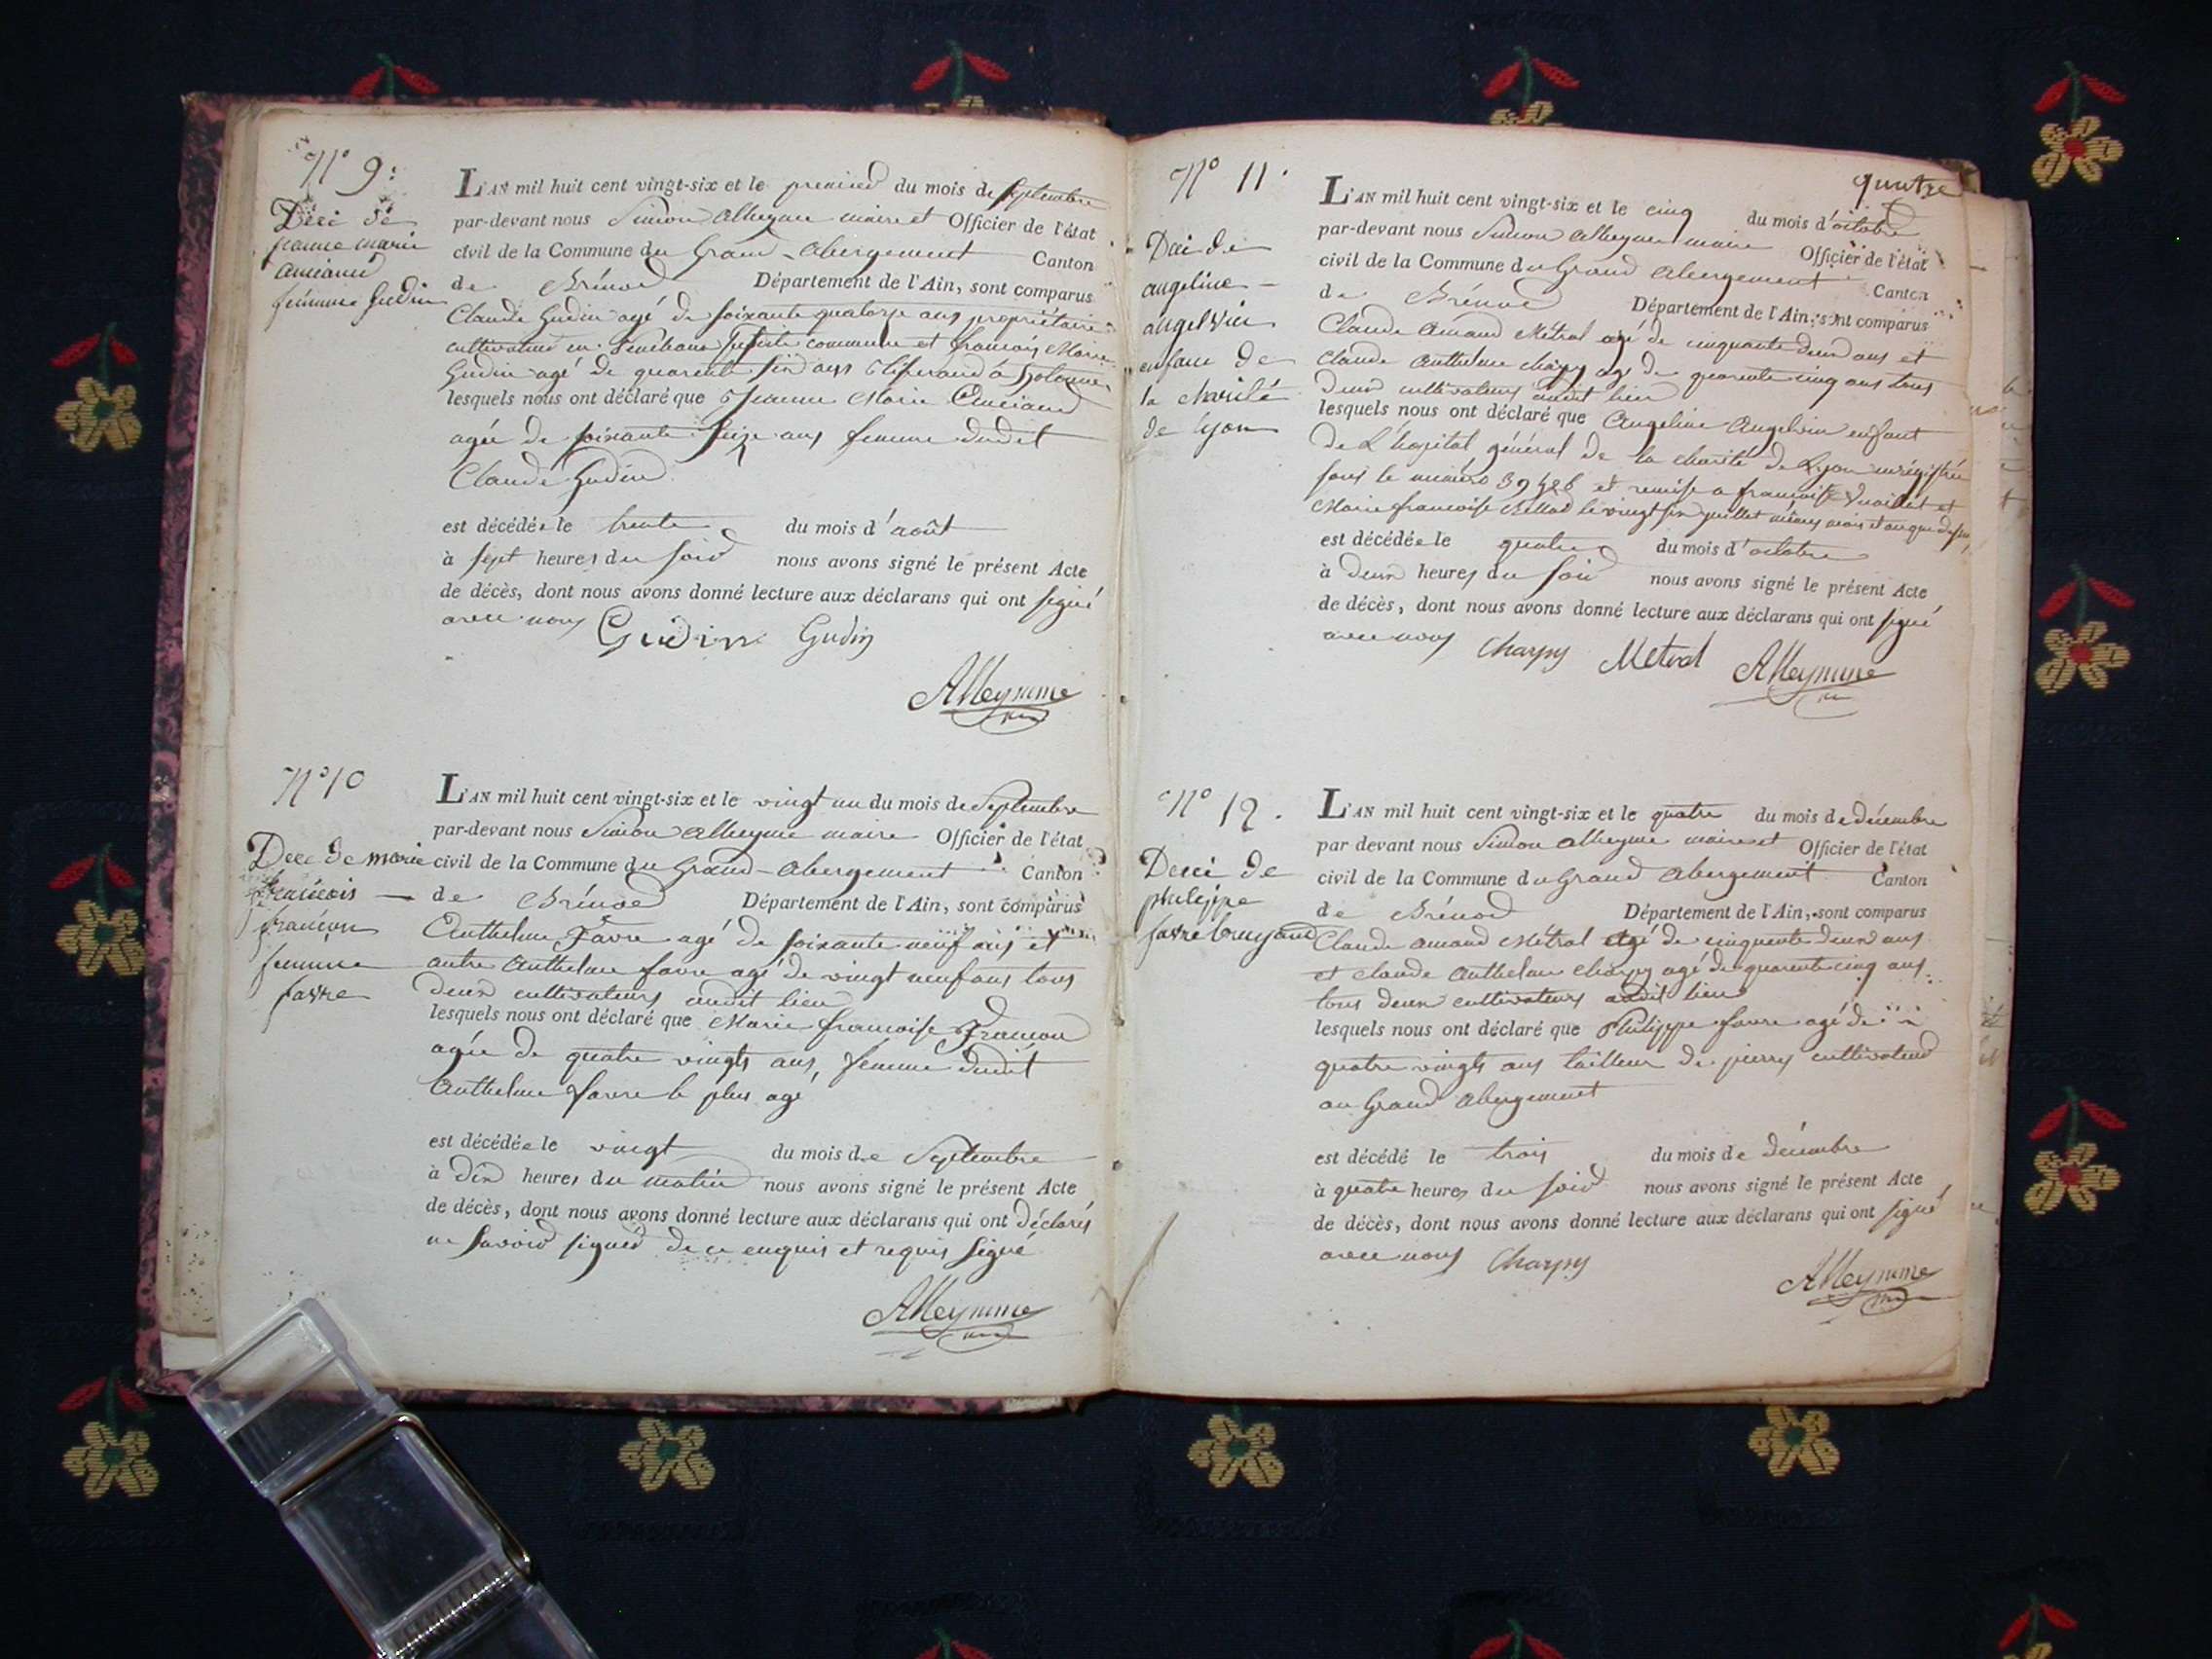 N° 9:
Déci de
jeanne marie
anciand
femme Gudin
L'AN mil huit cent vingt-six et le premier du mois de Septembre
par-devant nous Simon alleyme maire et Officier de l'état
civil de la Commune du Grand-abergement Canton
de Brénod Département de l'Ain, sont comparus
Claude Gudin agé de soixante quatorze ans propriétaire
cultivateur en commune et francois Marie
Gudin agé de quarente six ans à hotonnes
lesquels nous ont déclaré que Jeanne Marie Anciand
agée de soixante seize ans femme dudit
Claude Gudin
est décédée le trente du mois d'août
à sept heures du soir nous avons signé le présent Acte
de décès, dont nous avons donné lecture aux déclarans qui ont signé
avec nous Gudin Gudin
Alleymme
N° 10
Dece de marie
francois
francon
femme
favre
L'AN mil huit cent vingt-six et le vingt un du mois de Septembre
par-devant nous Simon alleyme maire Officier de l'état
civil de la Commune du Grand-abergement Canton
de Brénod Département de l'Ain, sont comparus
Anthelme Favre agé de soixante neuf ans et
autre Anthelme favre agé de vingt neuf ans tous
deux cultivateurs audit lieu
lesquels nous ont déclaré que Marie francoise Francon
agée de quatre vingts ans, femme dudit
Anthelme favre le plus agé
est décédée le vingt du mois de Septembre
à dix heures du matin nous avons signé le présent Acte
de décès, dont nous avons donné lecture aux déclarans qui ont déclarés
ne savoir signer de ce enquis et requis signé
Alleymme
N° 11.
quatre
Déci de
angeline
angelvin
enfant de
la charité
de lyon
L'AN mil huit cent vingt-six et le cinq du mois d'octobre
par-devant nous Simon alleyme maire Officier de l'état
civil de la Commune du Grand abergement Canton
de Brénod Département de l'Ain, sont comparus
Claude amand Métral agé de cinquante deux ans et
claude anthelme charpy agé de quarente cinq ans tous
deux cultivateurs audit lieu
lesquels nous ont déclaré que Angeline Angelvin enfant
de L'hopital général de la charité de Lyon enrégistrée
sous le numéro et remise a francois et
Marie francoise le vingt six juillet même mois et an que dessus,
est décédée le quatre du mois d'octobre
à deux heures du soir nous avons signé le présent Acte
de décès, dont nous avons donné lecture aux déclarans qui ont signé
avec nous Charpy Metral Alleymme
N° 12.
Déci de
philippe
favre bruyand
L'AN mil huit cent vingt-six et le quatre du mois de décembre
par devant nous Simon alleyme maire et Officier de l'état
civil de la Commune du Grand abergement Canton
de Brénod Département de l'Ain, sont comparus
Claude amand Métral agé de cinquente deux ans
et claude anthelme charpy agé de quarente cinq ans
tous deux cultivateurs audit lieu
lesquels nous ont déclaré que Philippe favre agé de
quatre vingts ans tailleur de pierres cultivateur
au Grand abergement
est décédé le trois du mois de décembre
à quatre heures du soir nous avons signé le présent Acte
de décès, dont nous avons donné lecture aux déclarans qui ont signé
avec nous Charpy
Alleymme